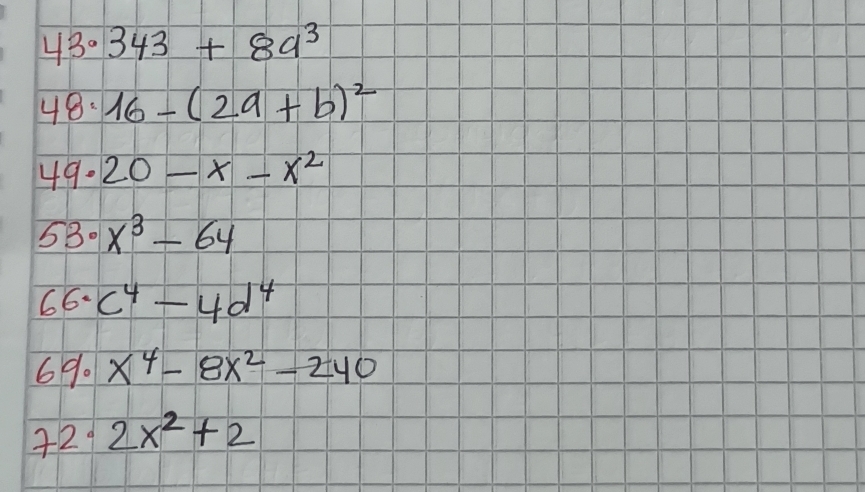 43. 343 + 8a³
48. 16 - (2a + b)²
49. 20 - x - x²
53. x³ - 64
66. c⁴ - 4d⁴
69. x⁴ - 8x² - 240
72. 2x² + 2